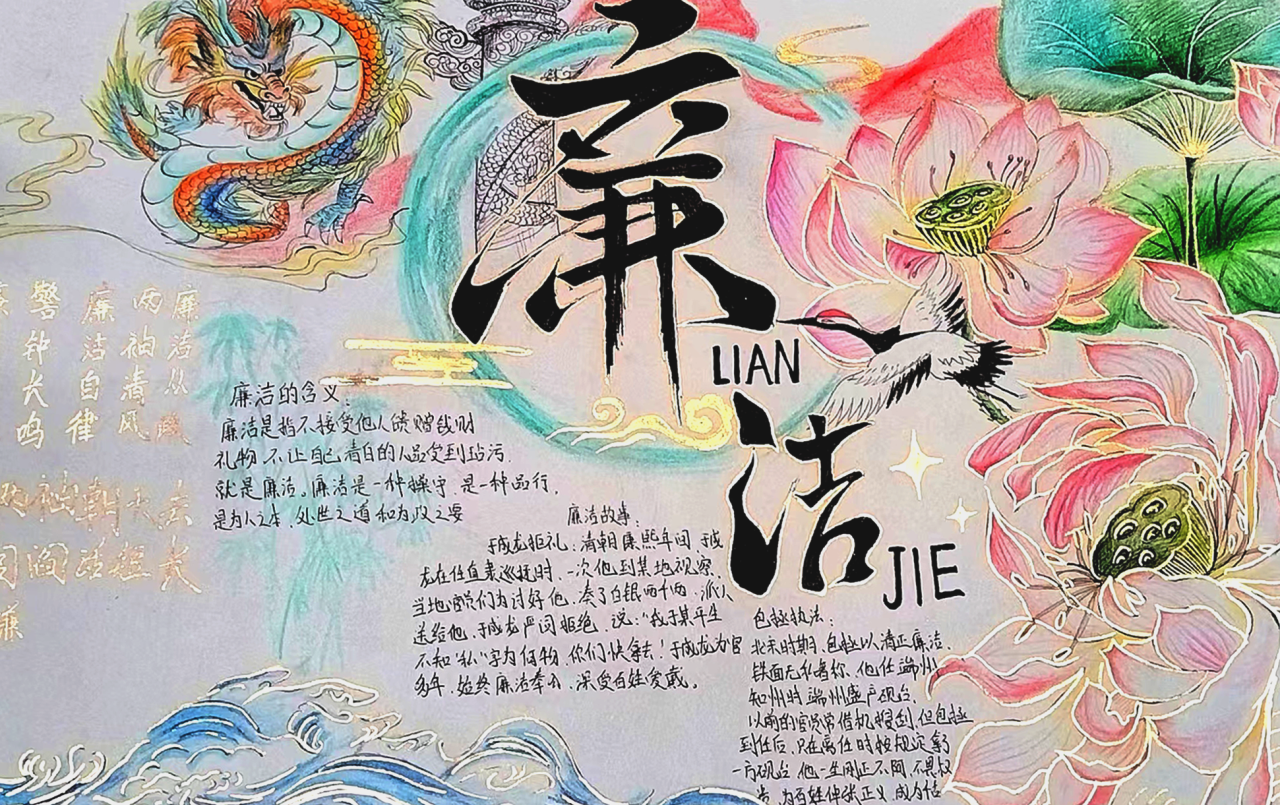 廉
LIAN
洁
JIE
廉洁从
两袖清风
廉洁自律
警钟长鸣
廉洁的含义:
廉洁是指不接受他人馈赠钱财
礼物、不让自己清白的人品受到玷污,
就是廉洁。廉洁是一种操守,是一种品行,
是为人之本、处世之道和为政之要
廉洁故事:
于成龙拒礼:清朝康熙年间,于成
龙在任直隶巡抚时,一次他到某地视察,
当地官员们为讨好他,凑了白银两千两,派人
送给他,于成龙严词拒绝,说:“我于某平生
不知“私”字为何物,你们快拿去!于成龙为官
多年,始终廉洁奉公,深受百姓爱戴。
包拯执法:
北宋时期,包拯以清正廉洁、
铁面无私著称、他任端州
知州时端州盛产砚台,
以前的官员常借机搜刮,但包拯
到任后,只在离任时按规定拿
一方砚台,他一生刚正不阿,不畏权
贵,为百姓伸张正义,成为